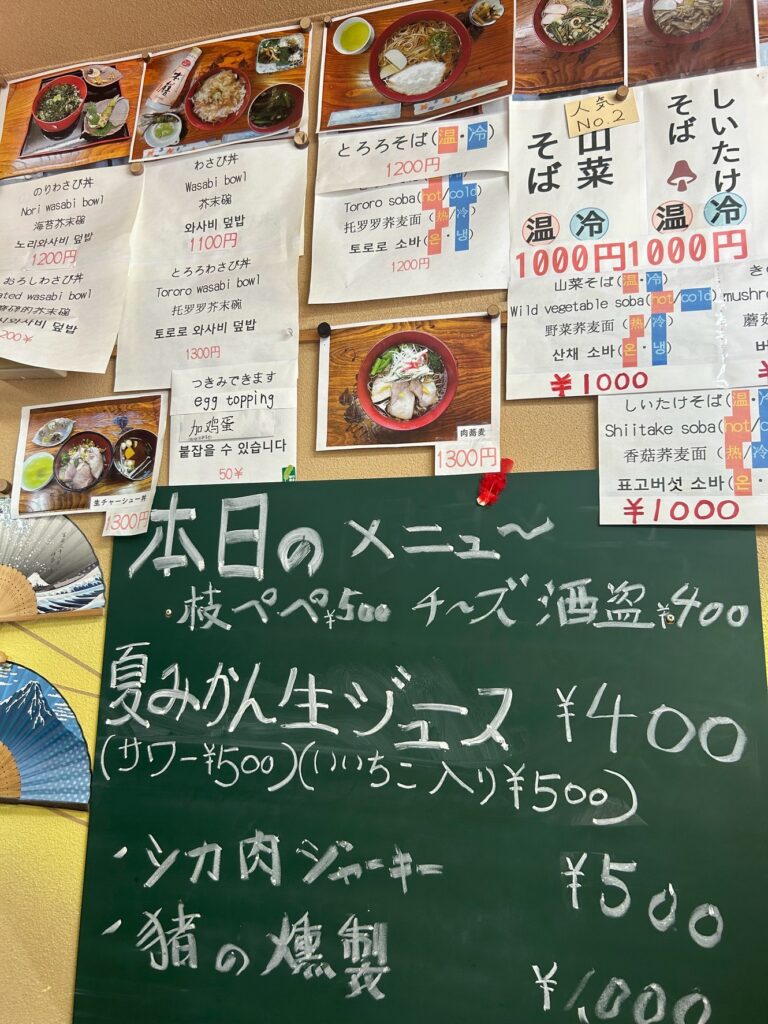 のりわさび丼
Nori wasabi bowl
海苔芥末碗
노리와사비 덮밥
1200円
おろしわさび丼
ated wasabi bowl
芥末碗
사비 덮밥
200¥
わさび丼
Wasabi bowl
芥末碗
와사비 덮밥
1100円
とろろわさび丼
Tororo wasabi bowl
托罗罗芥末碗
토로로 와사비 덮밥
1300円
つきみできます
egg topping
加鸡蛋
붙잡을 수 있습니다
50¥
とろろそば(温・冷)
1200円
Tororo soba(hot/cold)
托罗罗荞麦面(热/冷)
토로로 소바(온・냉)
1200円
人気
NO.2
山菜
そば
温 冷
1000円
しいたけ
そば
温 冷
1000円
山菜そば(温・冷)
Wild vegetable soba(hot/cold)
野菜荞麦面(热/冷)
산채 소바(온・냉)
¥1000
き
mushro
蘑菇
버
¥
しいたけそば(温・
Shiitake soba(hot/c
香菇荞麦面(热/
표고버섯 소바(온・
¥1000
肉蕎麦
1300円
生チャーシュー丼
1300円
本日のメニュ〜
枝ペペ¥500 チ〜ズ酒盗¥400
夏みかん生ジュース ¥400
(サワー¥500)(いいちこ入り¥500)
・シカ肉ジャーキー ¥500
・猪の燻製 ¥1,000